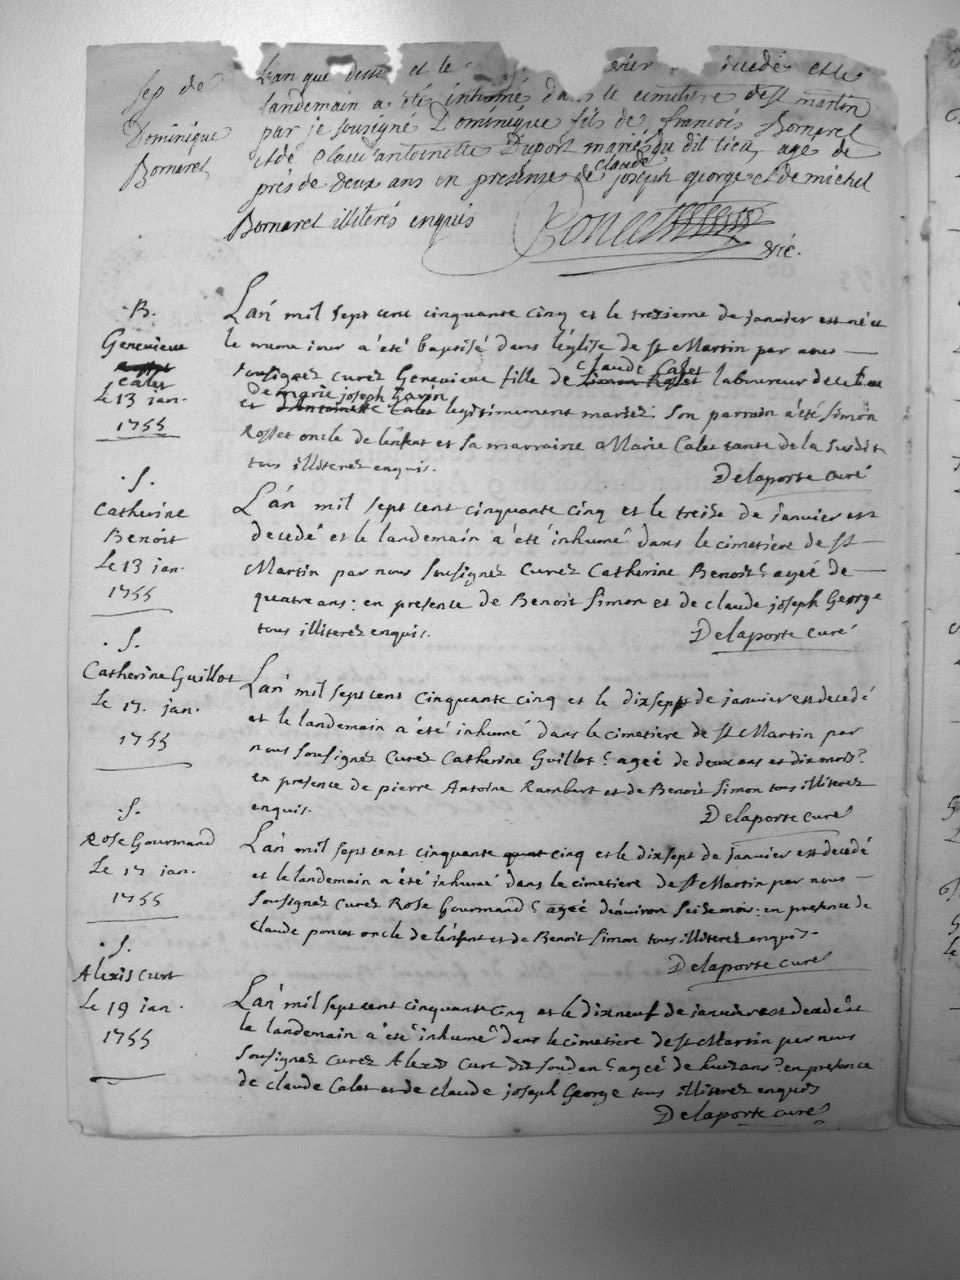 Sep de
Dominique
Bornarel
Lan que dessus et le vier decedé et le
landemain a été inhumé dans le cimetiere de st martin
par je sousigné Dominique fils de francois Bornarel
et de Claud antoinette Duport mariés du dit lieu, agé de
prés de deux ans en presense de claude joseph george et de michel
Bornarel illiterés enquis
vic.
B.
Genevieve
Calet
Le 13 jan.
1755
Lan mil sept cent cinquante cinq et le trezieme de janvier est née et
le meme jour a été baptisé dans l'église de st Martin par nous
sousignez curez Genevieve fille de Claude Calet laboureur de ce lieu
et de marie joseph Gavon legitimement mariez. Son parrain a été Simon
Rosset oncle de l'enfent et sa marraine Marie Calet tante de la susdit
tous illiterez enquis. Delaporte curé
S.
Catherine
Benoit
Le 13 jan.
1755
L'an mil sept cent cinquante cinq et le treise de janvier est
decedé et le landemain a été inhumé dans le cimetiere de st
Martin par nous sousignez Curez Catherine Benoit ageé de
quatre ans: en presence de Benoit Simon et de claude joseph George
tous illiterez enquis. Delaporte curé
S.
Catherine Guillot
Le 17. jan.
1755
Lan mil sept cent cinquante cinq et le dixsept de janvier est decedé
et le landemain a été inhumé dans le cimetiere de st Martin par
nous sousignez Curez Catherine Guillot ageé de deux ans et dix mois
en presence de pierre Antoine Rambert et de Benoit Simon tous illiterez
enquis. Delaporte curé
S.
Rose Gourmand
Le 17 jan.
1755
Lan mil sept cent cinquante cinq et le dixsept de janvier est decedé
et le landemain a été inhumé dans le cimetiere de st Martin par nous
sousignez Curez Rose Gourmand ageé d'environ seise mois: en presence de
Claude poncet oncle de l'enfent et de Benoit Simon tous illiterez enquis.
Delaporte curé
S.
Alexis Curt
Le 19 jan.
1755
Lan mil sept cent cinquante cinq et le dixneuf de janvier est decedé et
le landemain a été inhumé dans le cimetiere de st Martin par nous
sousignez Curez Alexis Curt dit soudan ageé de huit ans en presence
de claude Calet et de claude joseph George tous illiterez enquis
Delaporte curé